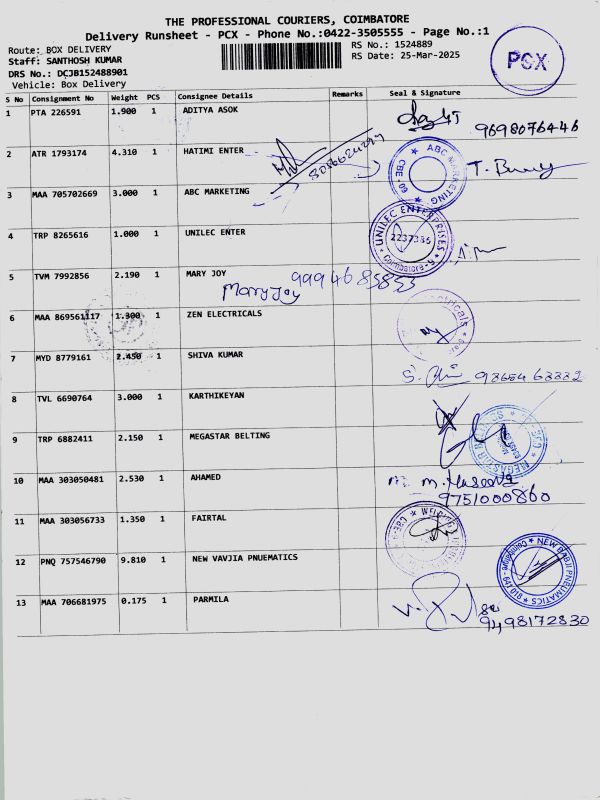 THE PROFESSIONAL COURIERS, COIMBATORE
Delivery Runsheet - PCX - Phone No.:0422-3505555 - Page No.:1
Route: BOX DELIVERY
Staff: SANTHOSH KUMAR
DRS No.: DCJB152488901
Vehicle: Box Delivery
RS No.: 1524889
RS Date: 25-Mar-2025
PCX
S No Consignment No Weight PCS Consignee Details Remarks Seal & Signature
1 PTA 226591 1.900 1 ADITYA ASOK
9698076446
2 ATR 1793174 4.310 1 HATIMI ENTER
ABC MARKETING CBE - 09
3 MAA 705702669 3.000 1 ABC MARKETING
4 TRP 8265616 1.000 1 UNILEC ENTER
UNILEC ENTERPRISES 2237386 Coimbatore-9
5 TVM 7992856 2.190 1 MARY JOY
Mary Joy
6 MAA 869561117 1.300 1 ZEN ELECTRICALS
7 MYD 8779161 2.450 1 SHIVA KUMAR
8 TVL 6690764 3.000 1 KARTHIKEYAN
9 TRP 6882411 2.150 1 MEGASTAR BELTING
10 MAA 303050481 2.530 1 AHAMED
9751000860
11 MAA 303056733 1.350 1 FAIRTAL
12 PNQ 757546790 9.810 1 NEW VAVJIA PNUEMATICS
NEW BABJI PNEUMATICS Coimbatore - 641 018
13 MAA 706681975 0.175 1 PARMILA
9498172830